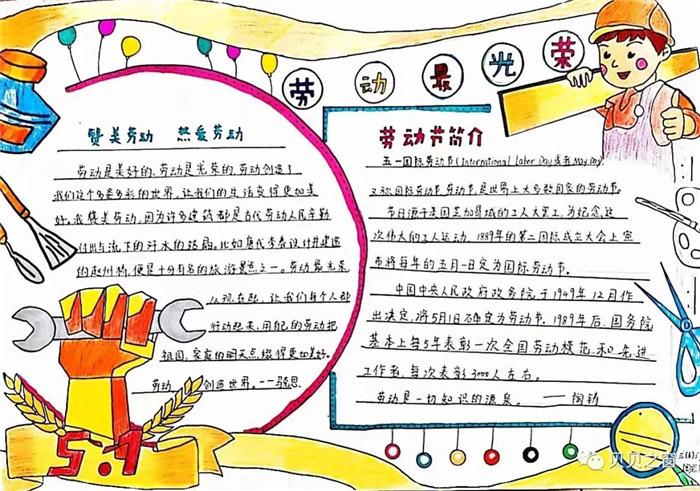 劳动最光荣
赞美劳动 热爱劳动
劳动是美好的,劳动是光荣的,劳动创造了
我们这个多姿多彩的世界,让我们的生活变得更加美
好。我赞美劳动,因为许多建筑都是古代劳动人民辛勤
付出与流下的汗水的结晶。比如唐代李春设计并建造
的赵州桥,便是十分有名的旅游景点之一。劳动最光荣
从现在起,让我们每个人都
行动起来,用自己的劳动把
祖国,家庭的明天点缀得更加美好。
劳动 创造世界。——马克思
5.1
劳动节简介
五一国际劳动节(International Labor Day或者May Day)
又称国际劳动节,劳动节是世界上大多数国家的劳动节。
节日源于美国芝加哥城的工人大罢工,为纪念这
次伟大的工人运动,1889年的第二国际成立大会上宣
布将每年的五月一日定为国际劳动节。
中国中央人民政府政务院于1949年12月作
出决定,将5月1日确定为劳动节。1989年后,国务院
基本上每5年表彰一次全国劳动模范和先进
工作者,每次表彰3000人左右。
劳动是一切知识的源泉。——陶铸
贝贝之窗